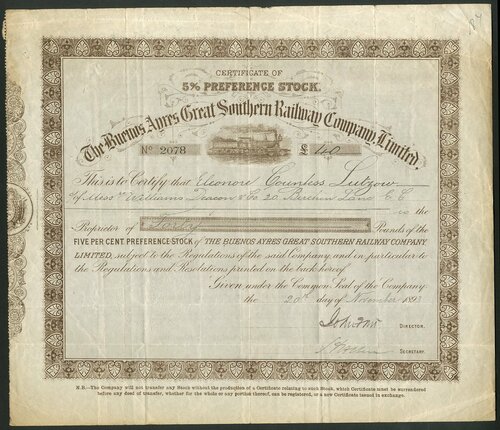 CERTIFICATE OF
5% PREFERENCE STOCK.
The Buenos Ayres Great Southern Railway Company, Limited.
No 2078 £ 40
This is to Certify that Eleonore Countess Lutzow
of Mess Williams Deacon & Co 20 Birchin Lane E C
is the
Proprietor of Forty Pounds of the
FIVE PER CENT. PREFERENCE STOCK OF THE BUENOS AYRES GREAT SOUTHERN RAILWAY COMPANY
LIMITED, subject to the Regulations of the said Company, and in particular to
the Regulations and Resolutions printed on the back hereof.
Given under the Common Seal of the Company
the 20th day of November 1893
DIRECTOR.
SECRETARY.
N.B.—The Company will not transfer any Stock without the production of a Certificate relating to such Stock, which Certificate must be surrendered
before any deed of transfer, whether for the whole or any portion thereof, can be registered, or a new Certificate issued in exchange.